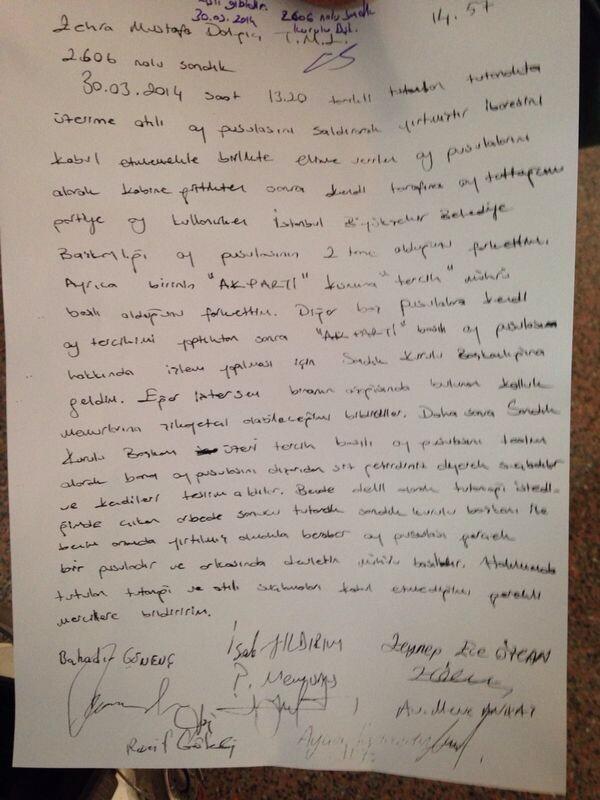 Aslı gibidir.
30.03.2014
2606 nolu Sandık
Kurulu Bşk.
14.57
Zehra Mustafa T.M.L.
2606 nolu sandık
30.03.2014 saat 13.20 tutulan tutanakta
üzerime atılı oy pusulasını saldırarak yırtmıştır ibaresini
kabul etmemekle birlikte elime verilen oy pusulalarını
alarak kabine gittikten sonra kendi tarafıma oy
partiye oy kullanırken İstanbul Büyükşehir Belediye
Başkanlığı oy pusulasının 2 tane olduğunu farkettim.
Ayrıca birinin "AKPARTİ" kısmına "tercih" mührü
basılı olduğunu farkettim. Diğer boş pusulalara kendi
oy tercihimi yaptıktan sonra "AKPARTİ" basılı oy pusulasını
hakkında işlem yapılması için Sandık Kurulu Başkanlığına
geldim. Eğer istersem binanın aşağısında bulunan kolluk
memurlarına şikayetçi olabileceğimi bildirdiler. Daha sonra Sandık
Kurulu Başkanı üzeri tercih basılı oy pusulasını teslim
alarak bana oy pusulasını dışarıdan siz getirdiniz diyerek suçladılar
ve kendileri teslim aldılar. Bende delil olarak tutanağı
çıkan arbede sonucu tutanak sandık kurulu başkanı ile
benim aramda yırtılmış olmakla beraber oy pusulası gerçek
bir pusuladır ve arkasında devletin mührü basılıdır. Hakkımda
tutulan tutanağı ve atılı suçlamaları kabul etmediğimi gerekli
mercilere bildiririm.
Bahadır GÖNENÇ
YILDIRIM
Zeynep Ece ÖZCAN
P.
Av.
Raif